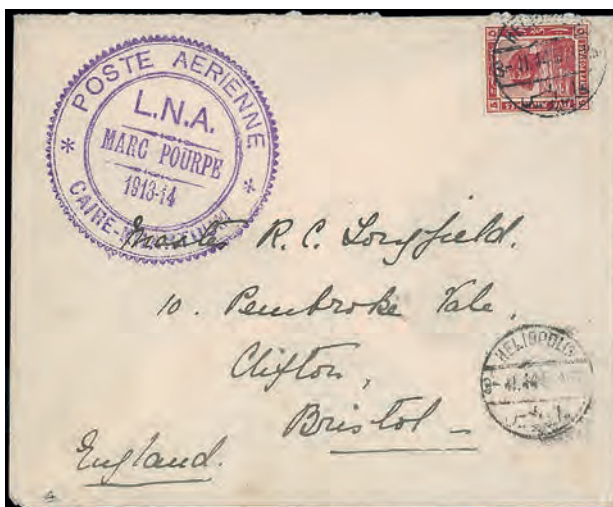 POSTE AERIENNE
L.N.A.
MARC POURPE
1913-14
Master R. C. Longfield.
10. Pembroke Vale,
Clifton,
Bristol
England.
HELIOPOLIS